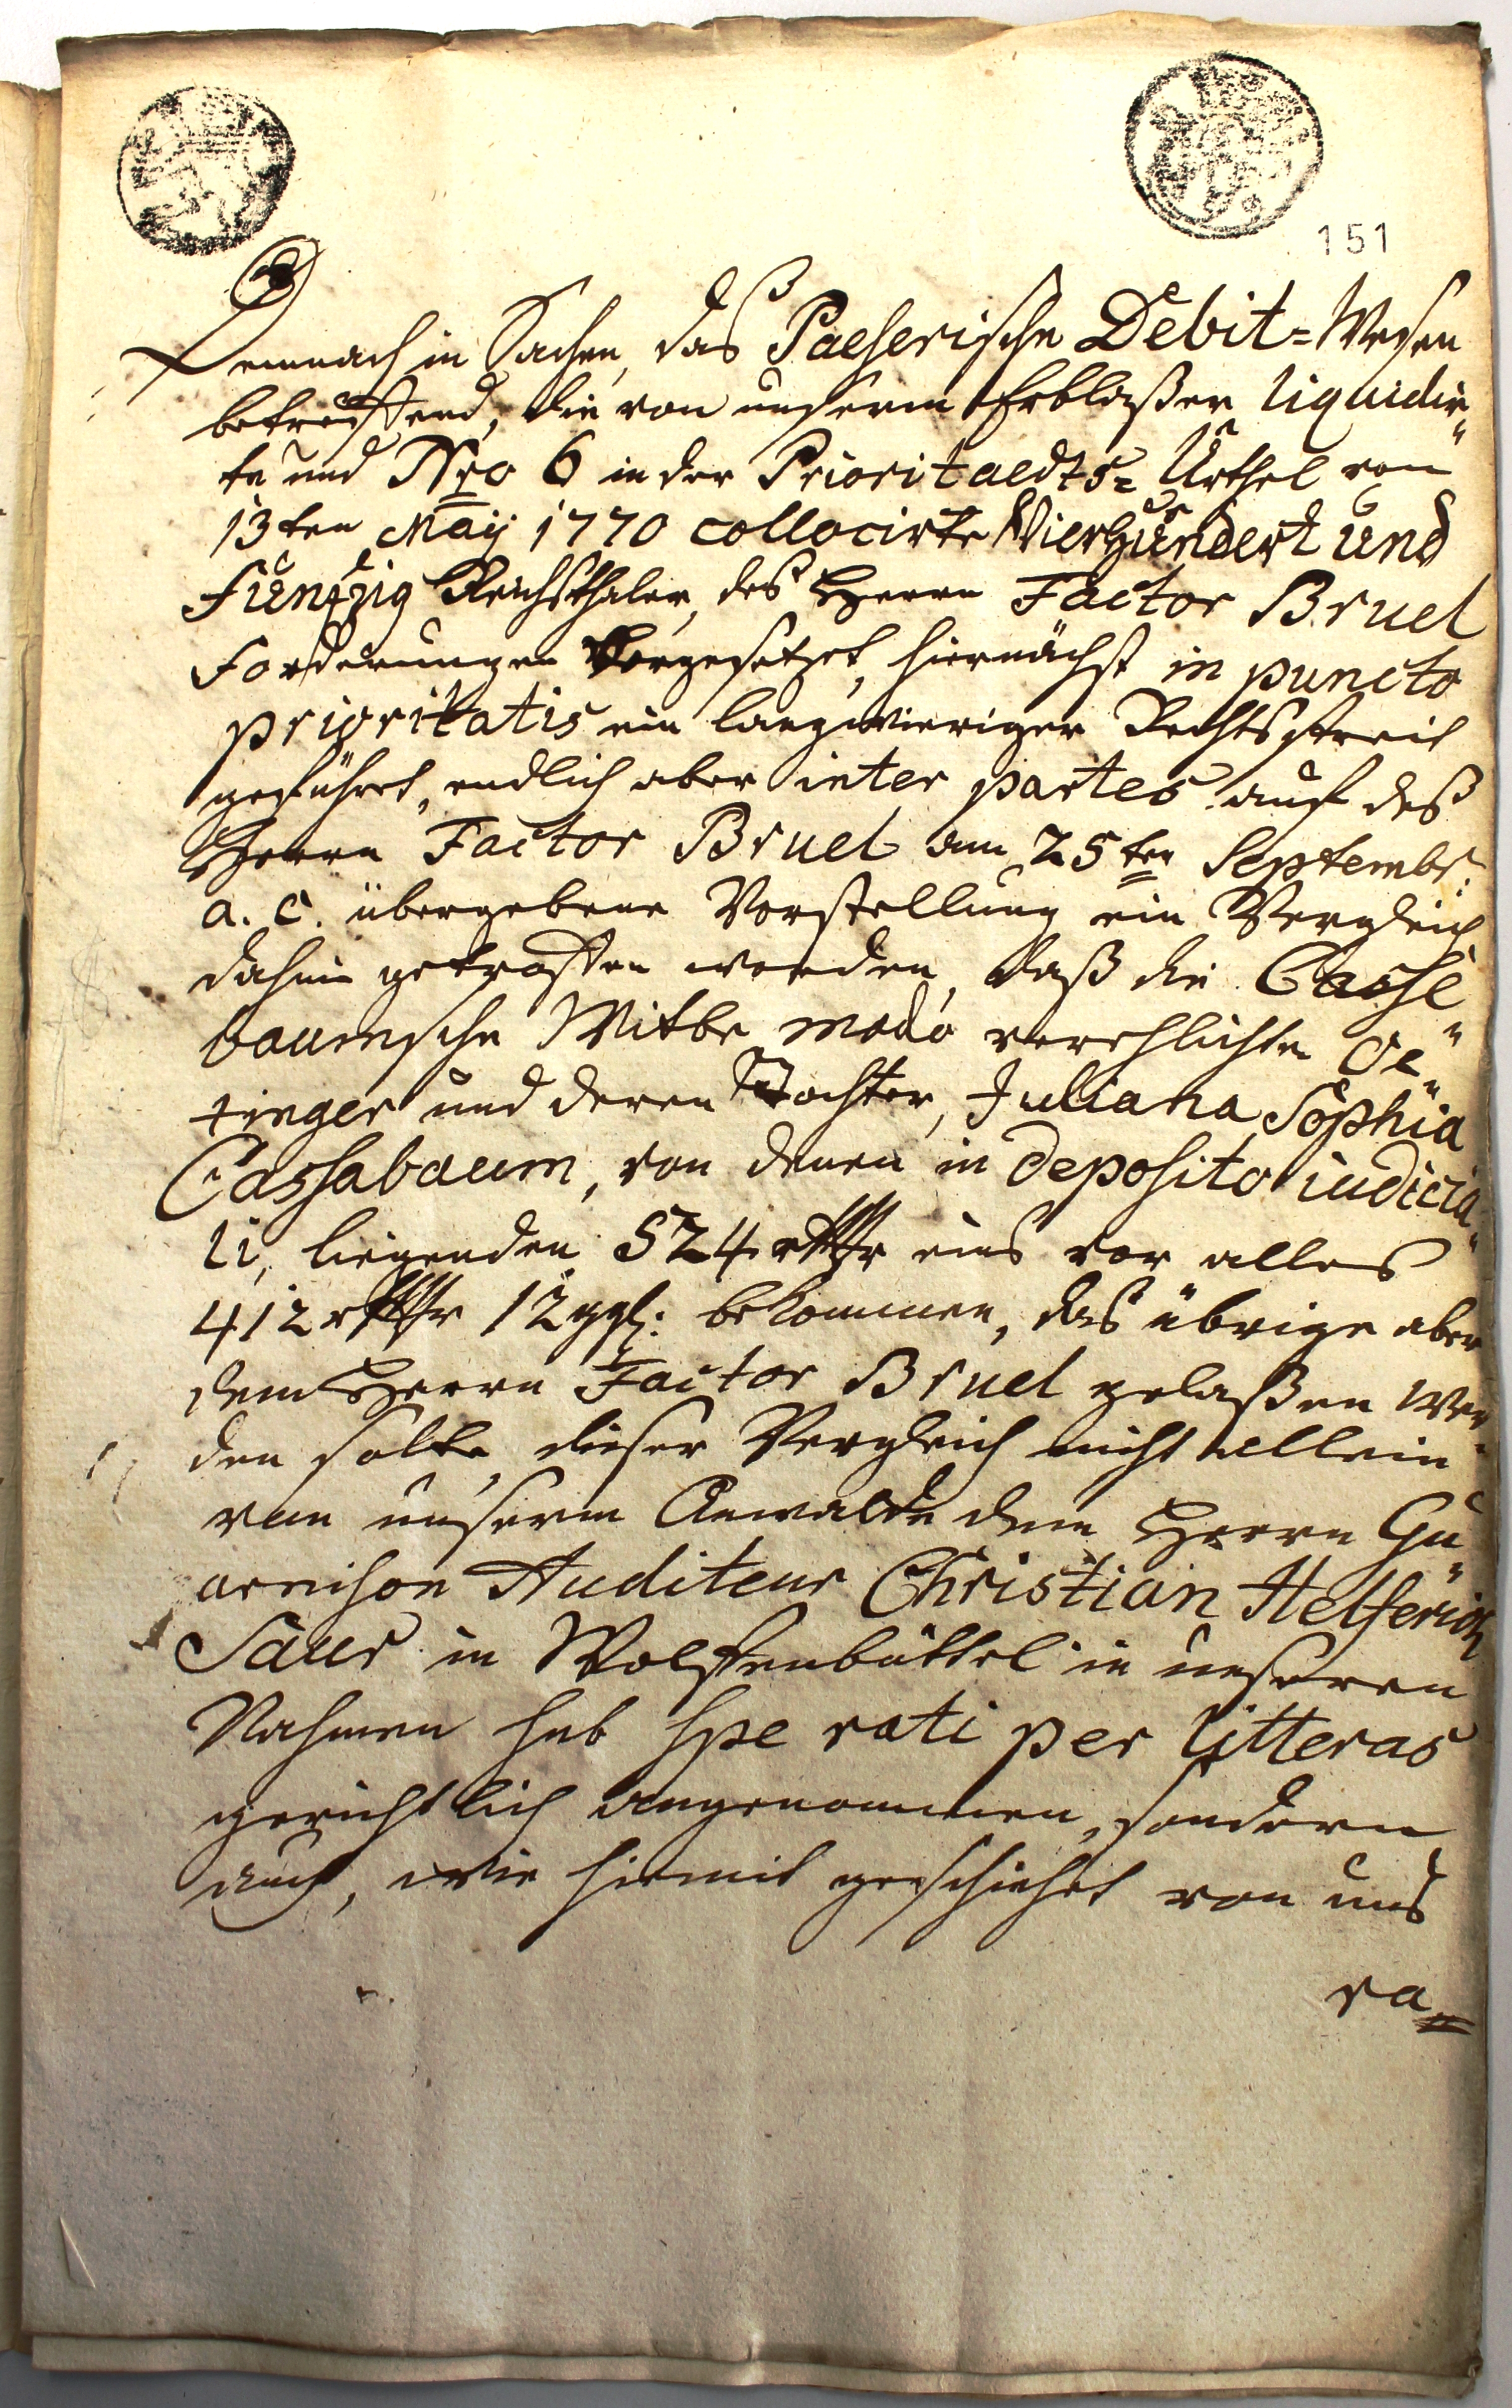 151
Demnach in Sachen, das Paeserische Debit=Wesen
betreffend, die von unserm Erblaßer liquidir„
te und Nro 6 in der Prioritaedts= Urthel vom
13ten Maij 1770 collocirte Vierhundert und
Funfzig Reichsthaler, des Herrn Factor Bruel
Forderungen vorgesetzet, hiernächst in puncto
prioritatis ein langwieriger Rechtsstreit
geführet, endlich aber inter partes auf deß
Herrn Factor Bruel am 25ten Septembr:
a. c. übergebene Vorstellung ein Vergleich
dahin getroffen worden, daß die Casse„
baumsche Witbe modo verehlichte Oe„
tinger und deren Tochter, Juliana Sophia
Cassabaum, von denen in deposito iudicia„
li, liegenden 524 rthlr eins vor alles
412 rthlr 12 ggl: bekommen, das übrige aber
dem Herrn Factor Bruel gelaßen wer„
den solte, dieser Vergleich nicht allein
von unserm Anwalde dem Herrn Gu„
arnison Auditeur Christian Helferich
Saur in Wolffenbüttel in unseren
Nahmen sub spe rati per litteras
gerichtlich angenommen, sondern
auch, wie hiemit geschiehet von uns
ra=